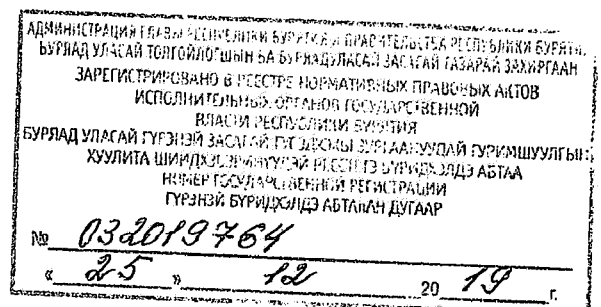 АДМИНИСТРАЦИЯ ГЛАВЫ РЕСПУБЛИКИ БУРЯТИЯ И ПРАВИТЕЛЬСТВА РЕСПУБЛИКИ БУРЯТИЯ
БУРЯАД УЛАСАЙ ТОЛГОЙЛОГШЫН БА БУРЯАД УЛАСАЙ ЗАСАГАЙ ГАЗАРАЙ ЗАХИРГААН
ЗАРЕГИСТРИРОВАНО В РЕЕСТРЕ НОРМАТИВНЫХ ПРАВОВЫХ АКТОВ
ИСПОЛНИТЕЛЬНЫХ ОРГАНОВ ГОСУДАРСТВЕННОЙ
ВЛАСТИ РЕСПУБЛИКИ БУРЯТИЯ
БУРЯАД УЛАСАЙ ГҮРЭНЭЙ ЗАСАГАЙ
ХУУЛИТА АБТАА
НОМЕР ГОСУДАРСТВЕННОЙ РЕГИСТРАЦИИ
ГҮРЭНЭЙ БҮРИДХЭЛДЭ АБТАҺАН ДУГААР
№ 032019764
« 25 » 12 20 19 г.